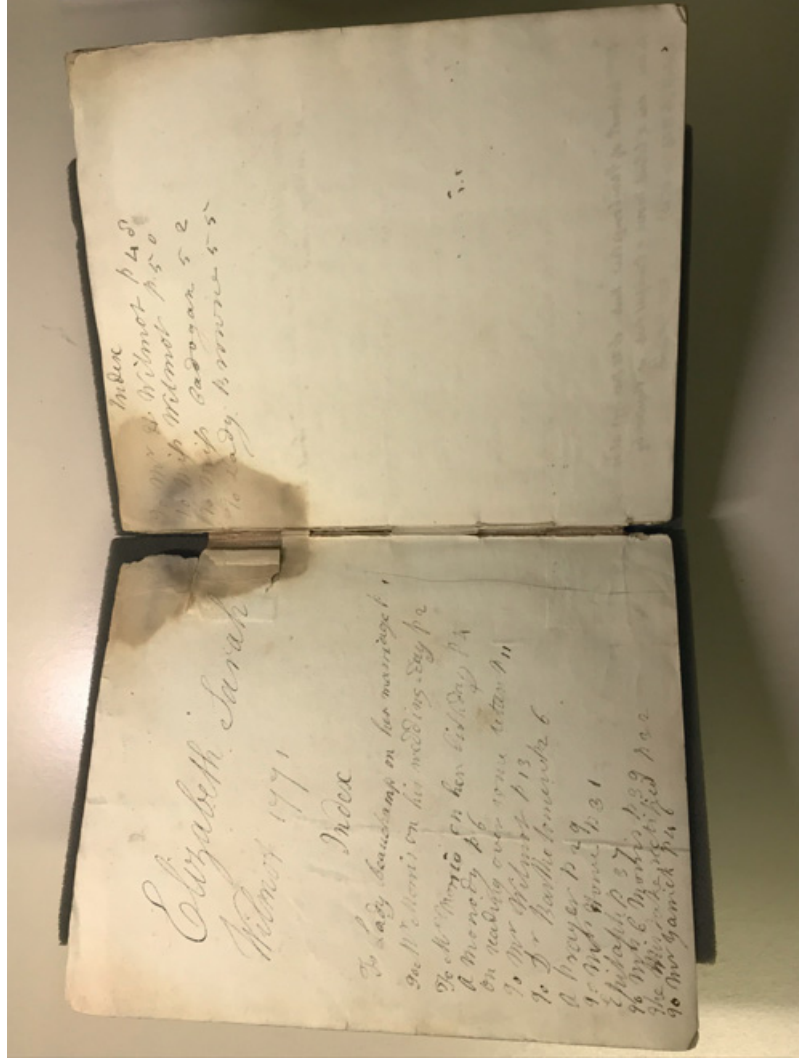 Elizabeth Sarah
Wilmot 1771
Index
To Lady Beauchamp on her marriage p 1
To Mr Morris on his wedding-day p 2
To Mrs Morris on her birthday p 4
a Monody p 6
on reading over some letters p 11
To Mr Wilmot p 13
To Dr Bartholomew p 26
a prayer p 29
To Mrs p 31
Epitaph p 37
To Mrs E Morris p 39
The p 22
To Mr Garrick p 46
Index
To Mr H: Wilmot p 48
To Miss Wilmot p. 50
To Miss Cadogan 52
To Lady Browne 55